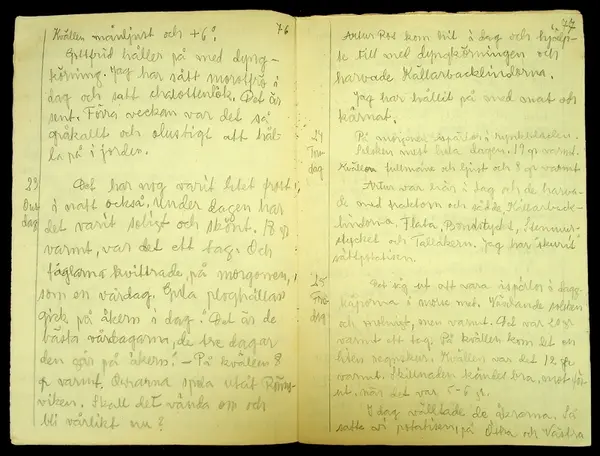 76
Kvällen månljust och +6°
Gottfrid håller på med dyng-
körning. Jag har sått morotfrö i
dag och satt chalottenlök. Det är
sent. Förra veckan var det så
gråkallt och olustigt att hål-
la på i jorden.
23
Ons
dag
Det har nog varit litet frost
i natt också. Under dagen har
det varit soligt och skönt. 18 gr
varmt, var det ett tag. Och
fåglarna kvittrade, på morgonen,
som en vårdag. Gula ploghållan
gick på åkern i dag. "Det är de
bästa vårdagarna, de tre dagar
den går på åkern." – På kvällen 8
gr varmt. Orrarna spela utåt
viken. Skall det vända om och
bli vårlikt nu?
77
Artur Ros kom hit i dag och hjälp-
te till med dyngkörningen och
harvade Källarbacklindorna.
Jag har hållit på med mat och
kärnat.
24
Tors
dag
På morgonen ispärlor i
Solsken mest hela dagen. 19 gr varmt.
Kvällen fullmåne så ljust och 8 gr varmt
Artur var här i dag så de harva-
de med traktorn och sådde Källarback-
lindorna, Flata, Bondstycket, Stenmur-
stycket och Tallåkern. Jag har "skurit"
sättpotatisen.
25
Fre
dag
Det såg ut att vara ispärlor i dagg-
kåporna i morse med. Växlande solsken
och molnigt, men varmt. Det var 20 gr
varmt ett tag. På kvällen kom det en
liten regnskur. Kvällen var det 12 gr
varmt. Skillnaden kändes bra, mot för-
ut, när det var 5-6 gr.
I dag vältade de åkrarna. Så
satte vi potatisen, på Östra och Västra